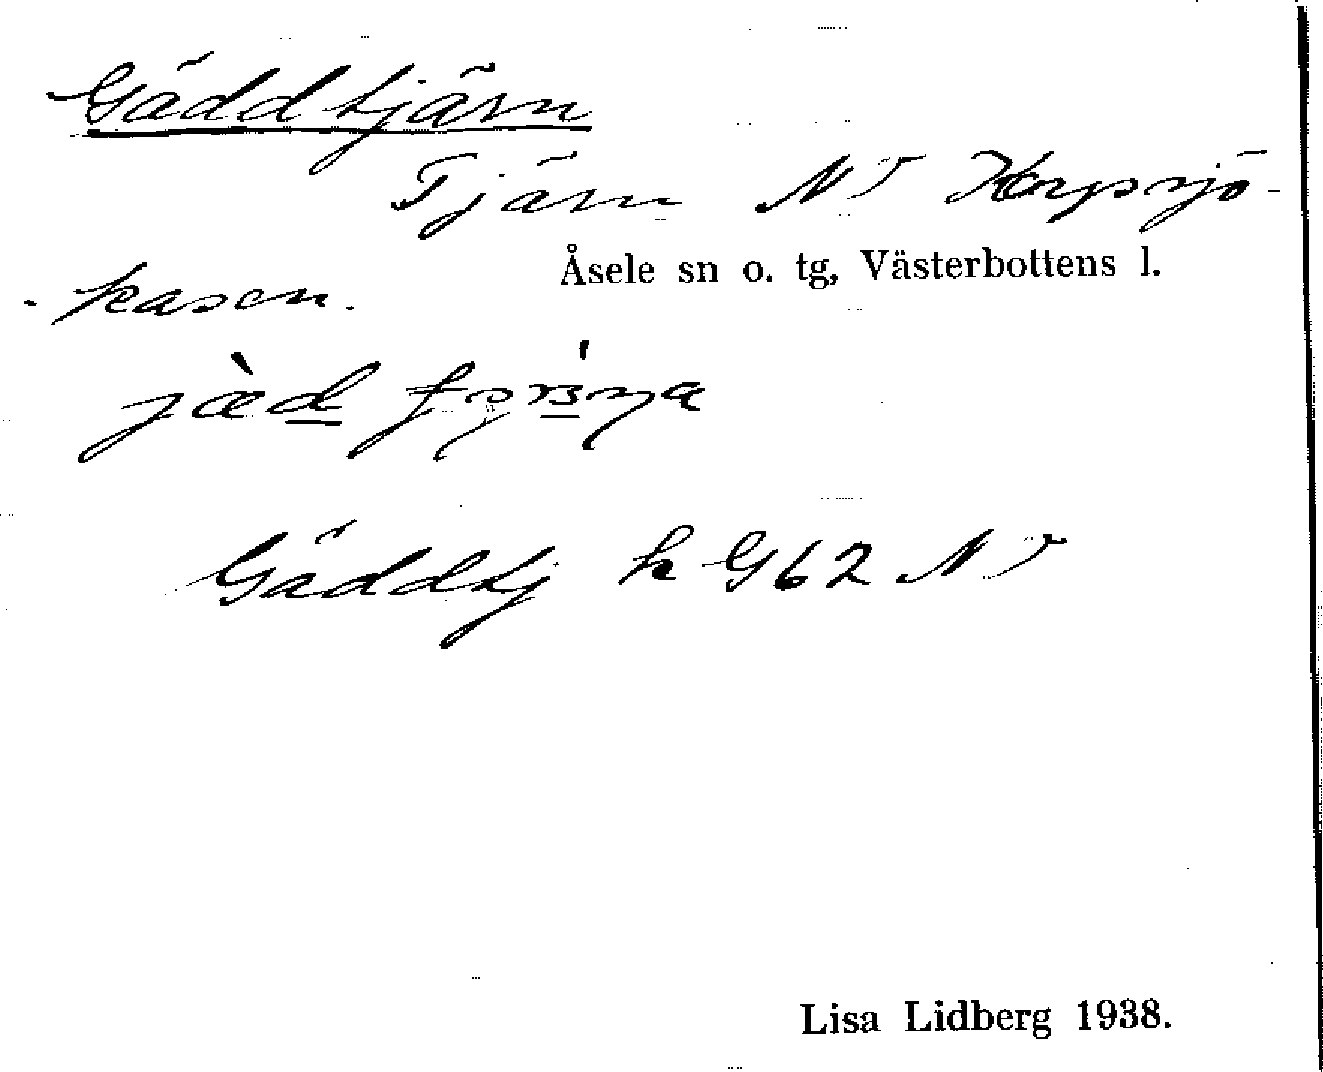 Gäddtjärn
Tjärn NV Korpsjö-
Åsele sn o. tg, Västerbottens l.
-kasen.
Gäddtj k G62 NV
Lisa Lidberg 1938.